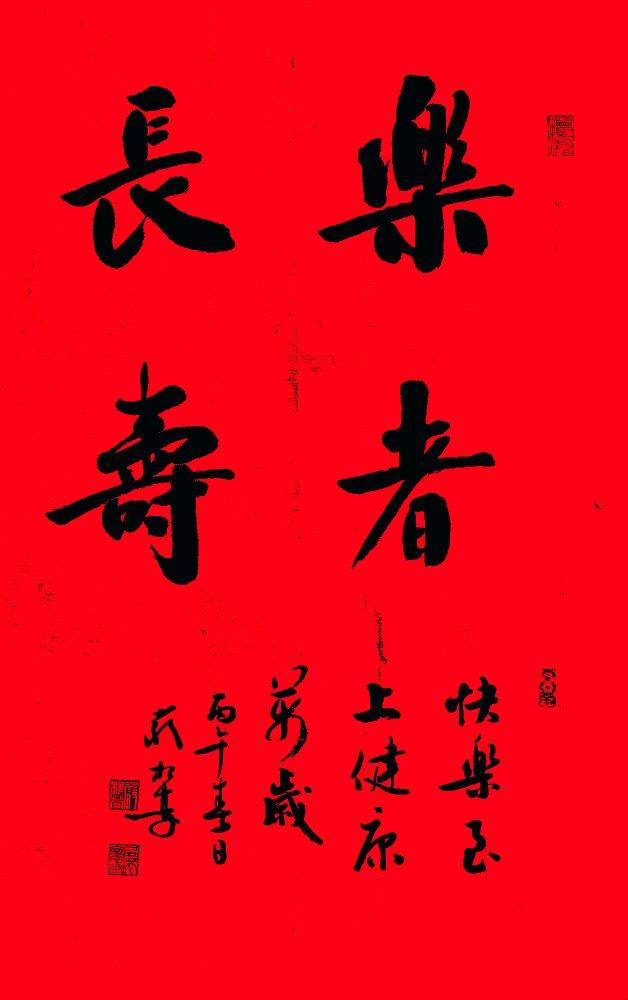 樂者
長壽
快樂至
上健康
萬歲
丙午春日